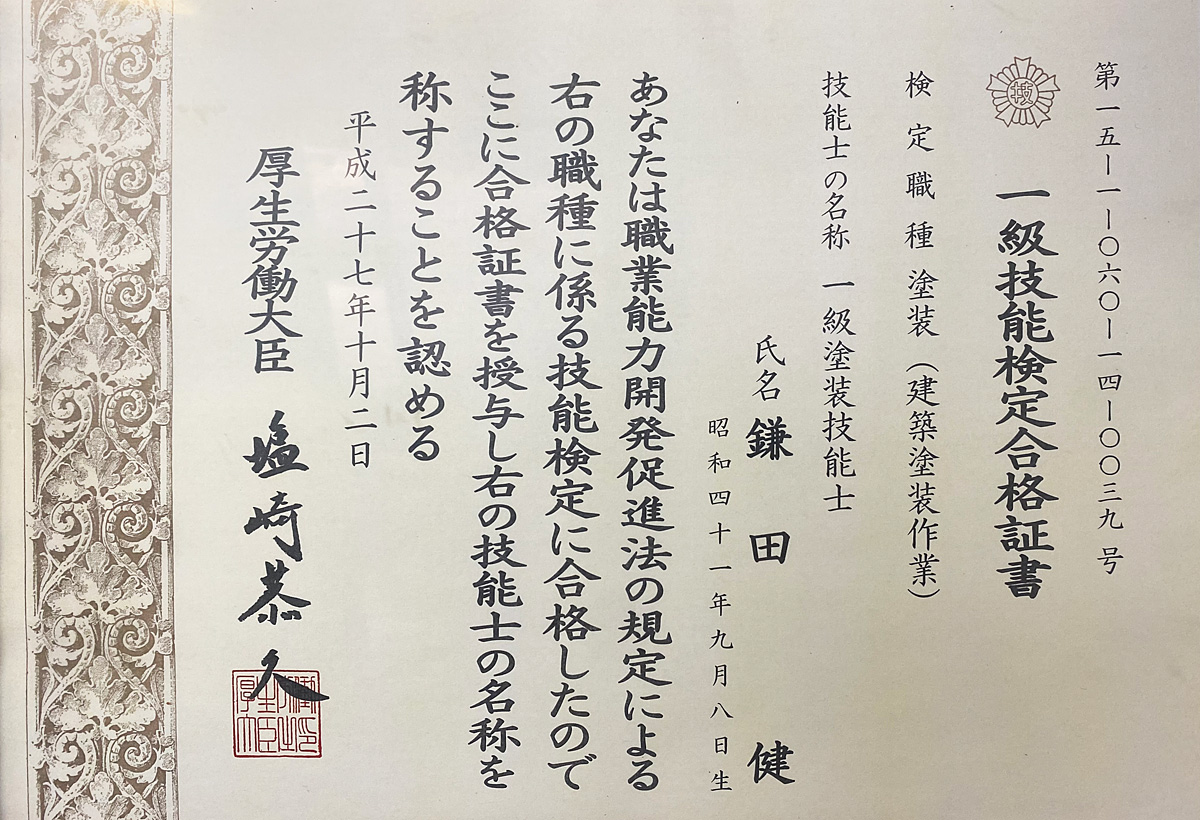 第一五―一―〇六〇―一四―〇〇三九号
技
一級技能検定合格証書
検定職種 塗装（建築塗装作業）
技能士の名称 一級塗装技能士
氏名 鎌田 健
昭和四十一年九月八日生
あなたは職業能力開発促進法の規定による
右の職種に係る技能検定に合格したので
ここに合格証書を授与し右の技能士の名称を
称することを認める
平成二十七年十月二日
厚生労働大臣 塩崎恭久